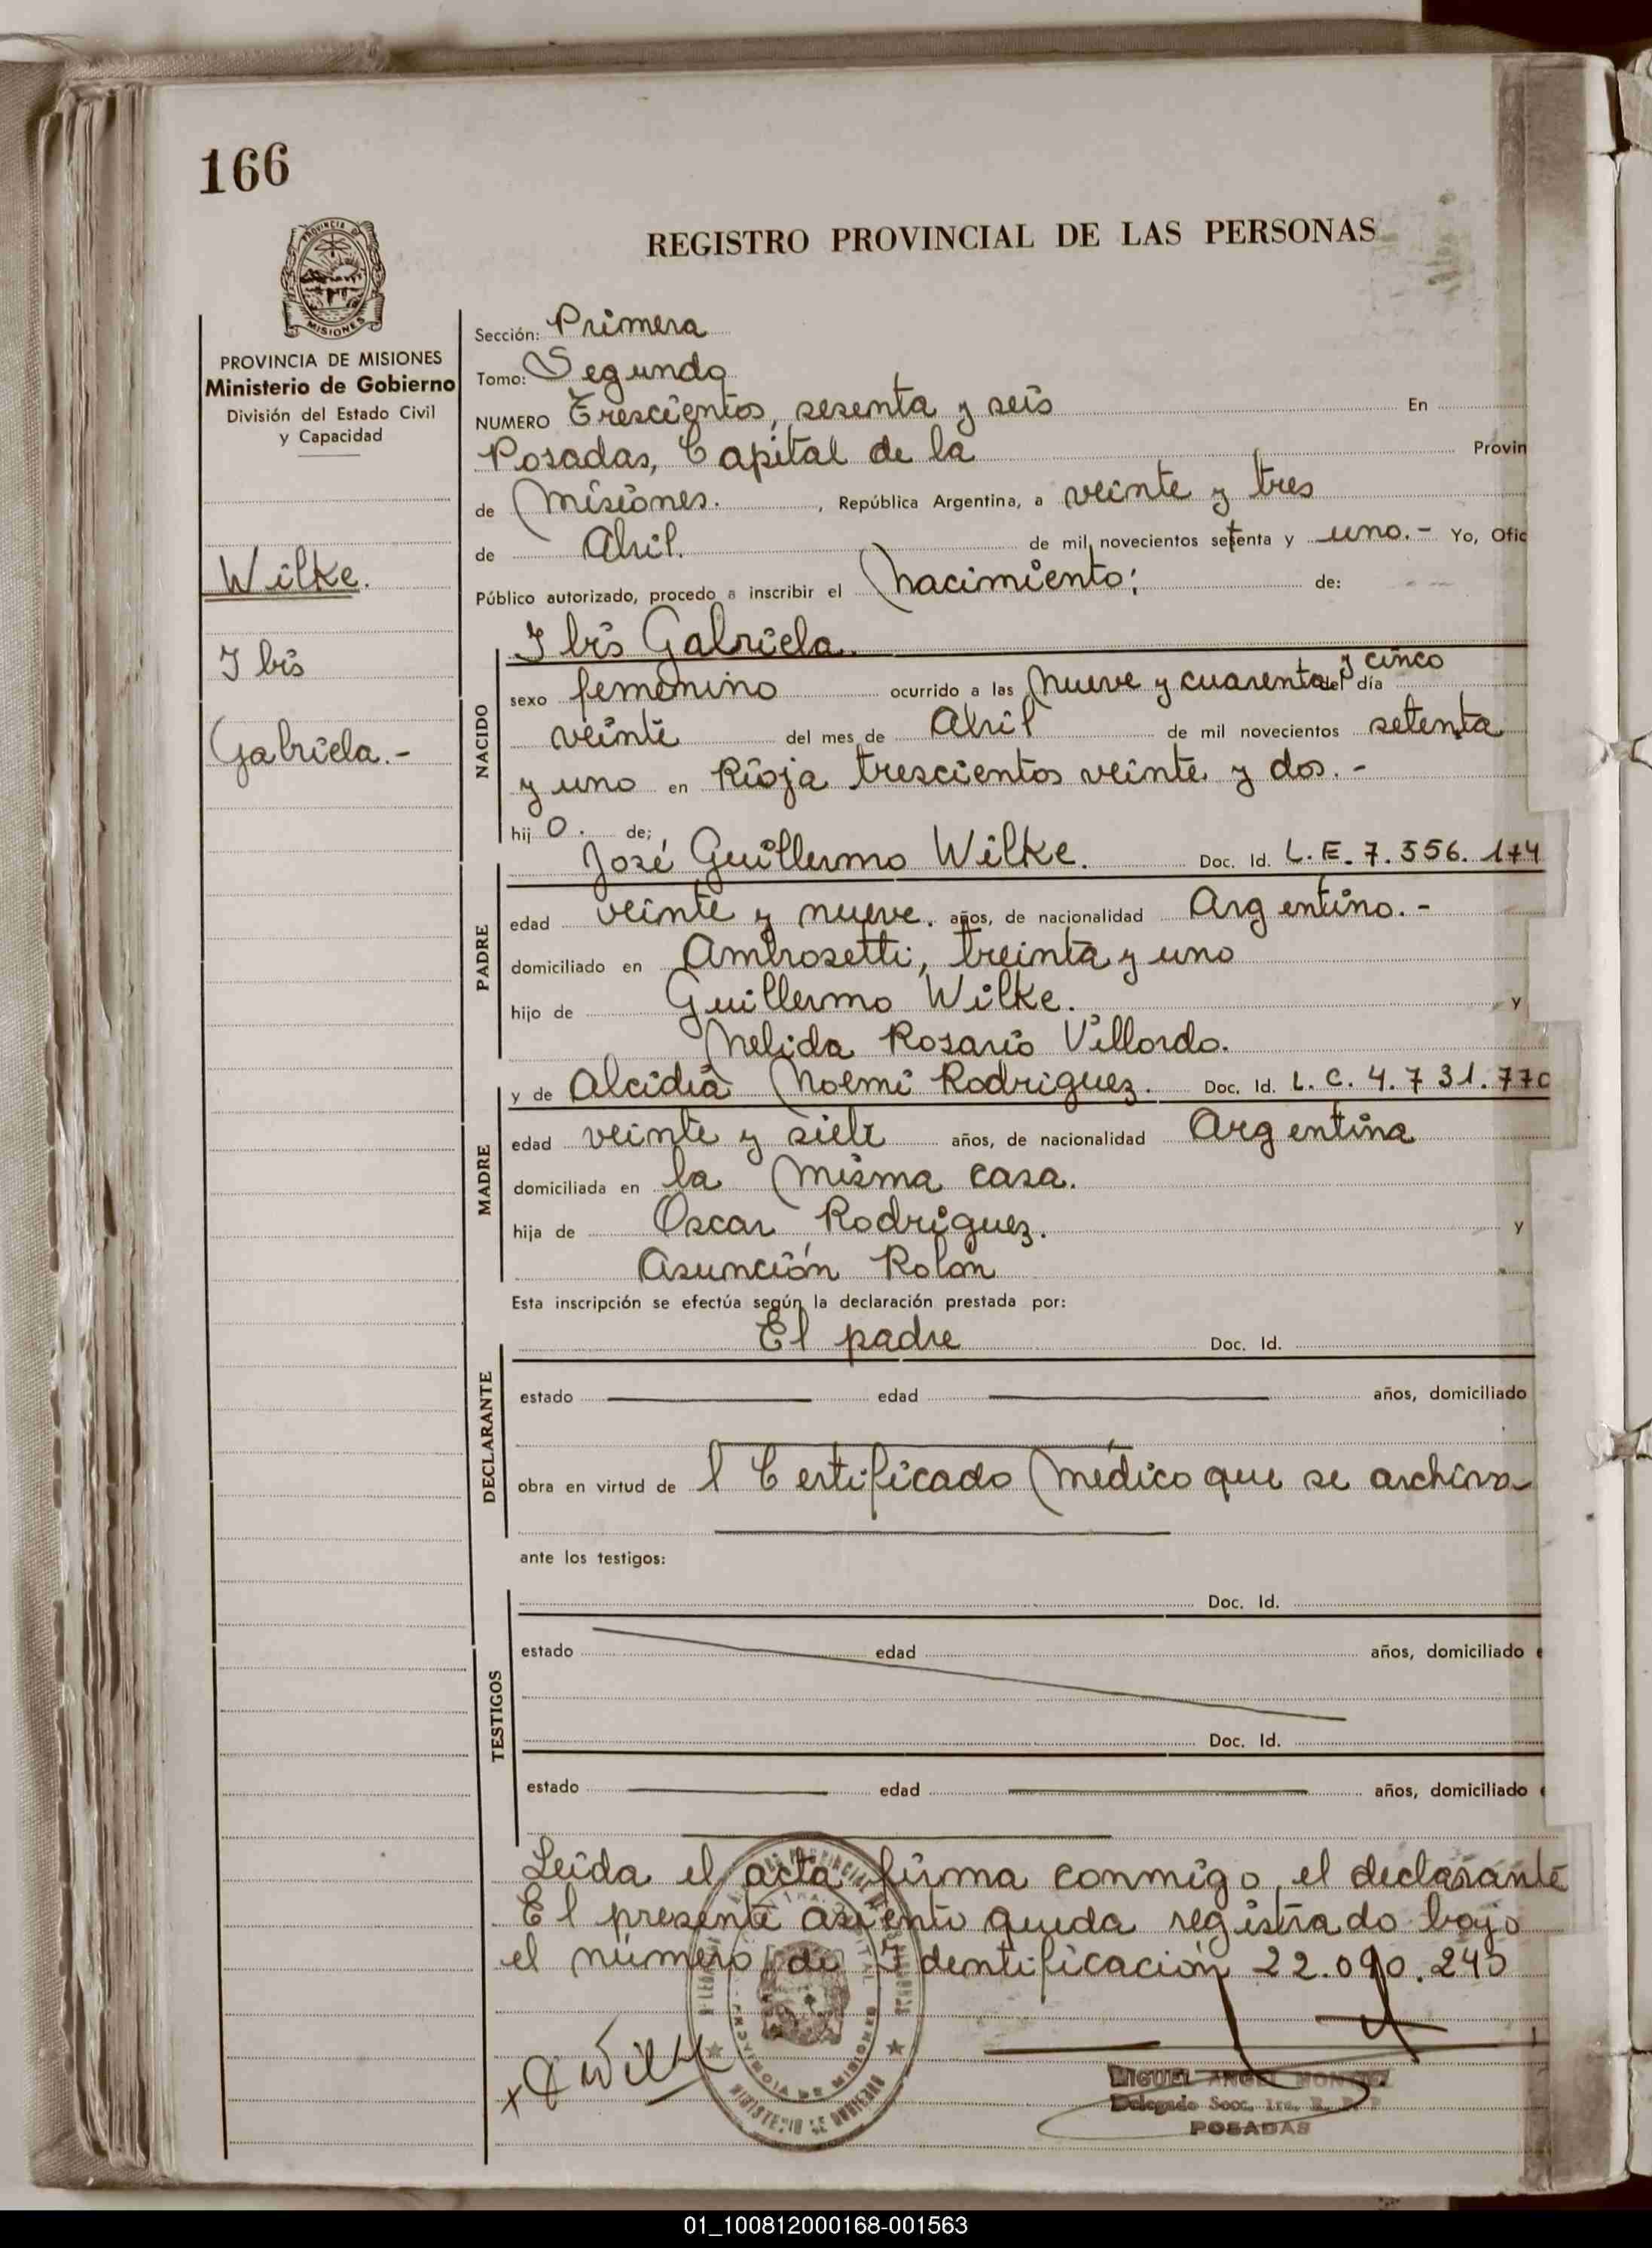 166
REGISTRO PROVINCIAL DE LAS PERSONAS
MISIONES
PROVINCIA DE MISIONES
Ministerio de Gobierno
División del Estado Civil
y Capacidad
Wilke.
Ibis
Gabriela.-
Sección: Primera
Tomo: Segundo
NUMERO Trescientos, sesenta y seis En
Posadas, Capital de la Provin
de Misiones. , República Argentina, a veinte y tres
de Abril. de mil novecientos setenta y uno.- Yo, Ofic
Público autorizado, procedo a inscribir el Nacimiento; de:
Ibis Gabriela.
NACIDO
sexo femenino ocurrido a las Nueve y cuarenta y cinco del día
veinte del mes de Abril de mil novecientos setenta
y uno en Rioja trescientos veinte y dos.-
hij o. de;
José Guillermo Wilke. Doc. Id. L.E. 7.556.174
PADRE
edad veinte y nueve. años, de nacionalidad Argentino.-
domiciliado en Ambrosetti, treinta y uno
hijo de Guillermo Wilke. y
Nelida Rosario Villordo.
y de Alcidia Noemi Rodriguez. Doc. Id. L.C. 4.731.770
MADRE
edad veinte y siete años, de nacionalidad Argentina
domiciliada en la Misma casa.
hija de Oscar Rodriguez. y
Asunción Rolon
Esta inscripción se efectúa según la declaración prestada por:
El padre Doc. Id.
DECLARANTE
estado edad años, domiciliado
obra en virtud de l Certificado Médico que se archiva
ante los testigos:
Doc. Id.
TESTIGOS
estado edad años, domiciliado
Doc. Id.
estado edad años, domiciliado
Leida el acta firma conmigo el declarante
El presente asiento queda registrado bajo
el número de Identificación 22.090.245
x G Wilke
MIGUEL ANGEL
Delegado Secc. 1ra. R. P. P.
POSADAS
PROVINCIA DE MISIONES
MINISTERIO DE GOBIERNO
01_100812000168-001563